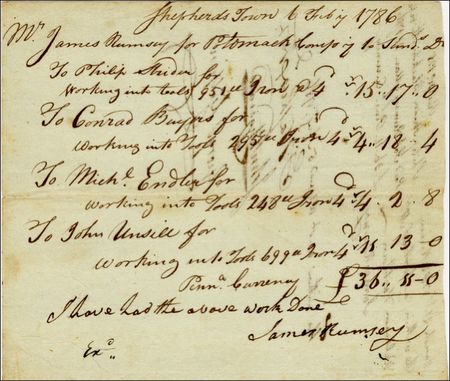 Shepherds Town 6 Feby 1786
Mr. James Rumsey for Potomack Compy to Sund. Dr
To Philip for
Working into tools 951 lb Iron @ 4d 15..17..0
To Conrad Byers for
Working into Tools 295 lb Iron 4d 4..18 4
To Michl. Endler for
Working into Tools 248 lb Iron 4d 4..2..8
To John Unsill for
Working into Tools 699 lb Iron 4d 11 13-0
Penna. Currency £36..11-0
I have had the above work Done
James Rumsey
Exd..